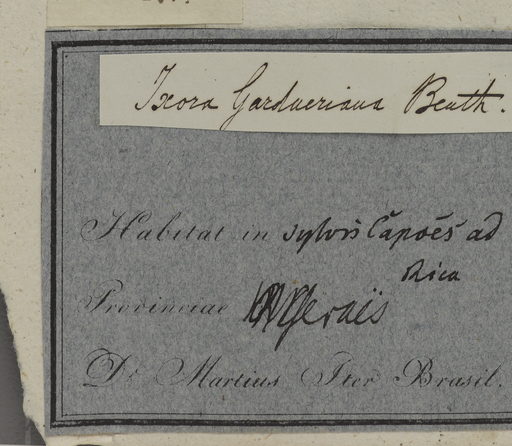 Ixora Gardneriana Benth.
Habitat in sylvis Capoës ad
Rica
Provinciae Geraës
Dr. Martius Iter Brasil.